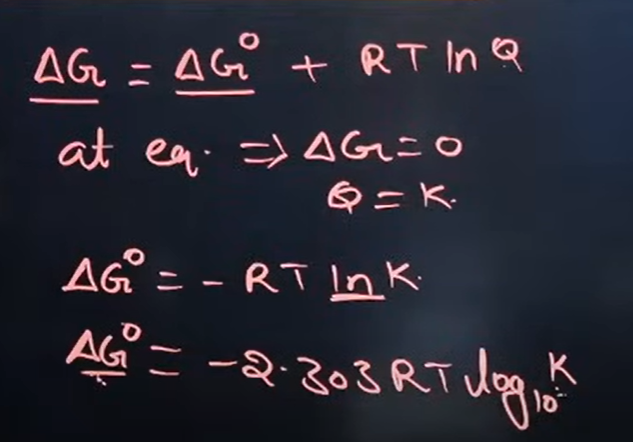 ΔG = ΔG° + RT ln Q
at eq. ⇒ ΔG = 0
Q = K.
ΔG° = - RT ln K.
ΔG° = -2.303 RT log₁₀ K